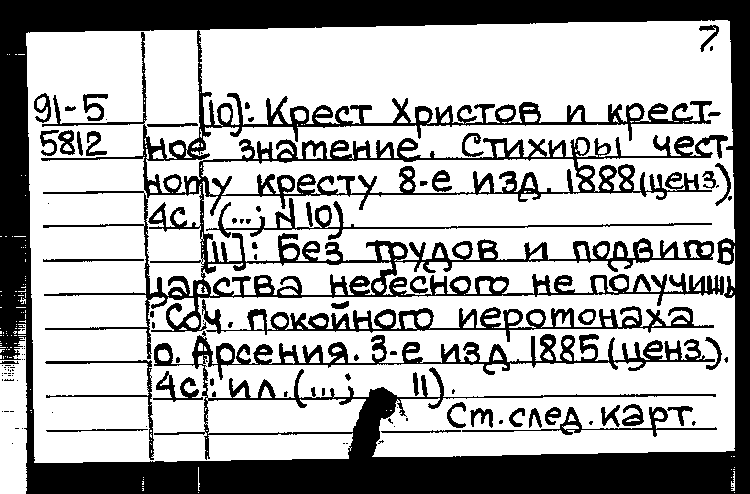 7.
91-5 [10]: Крест Христов и крест-
5812 ное знамение. Стихиры чест-
ному кресту 8-е изд. 1888 (ценз.).
4с. (...; № 10).
[11]: Без трудов и подвигов
царства небесного не получишь
: Соч. покойного иеромонаха
о. Арсения. 3-е изд 1885 (ценз.).
4с.: ил. (...; 11).
См. след. карт.